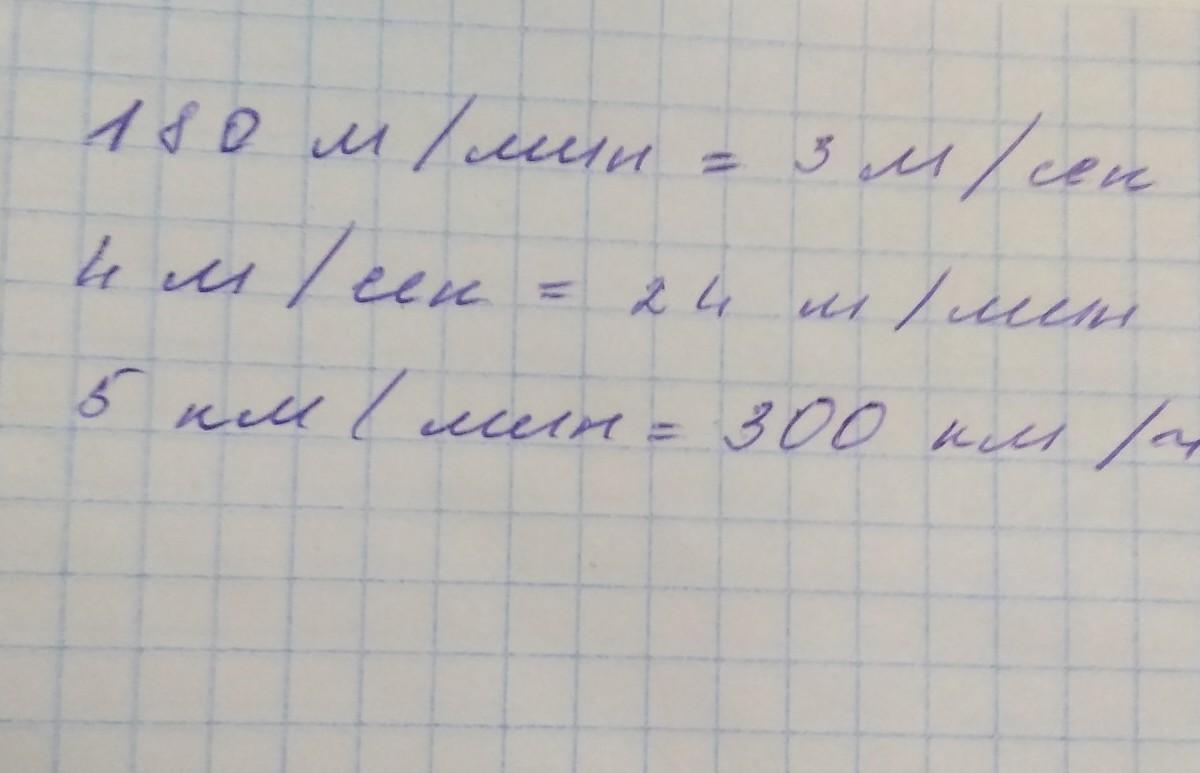 180 м/мин = 3 м/сек
4 м/сек = 24 м/мин
5 км/мин = 300 км/ч